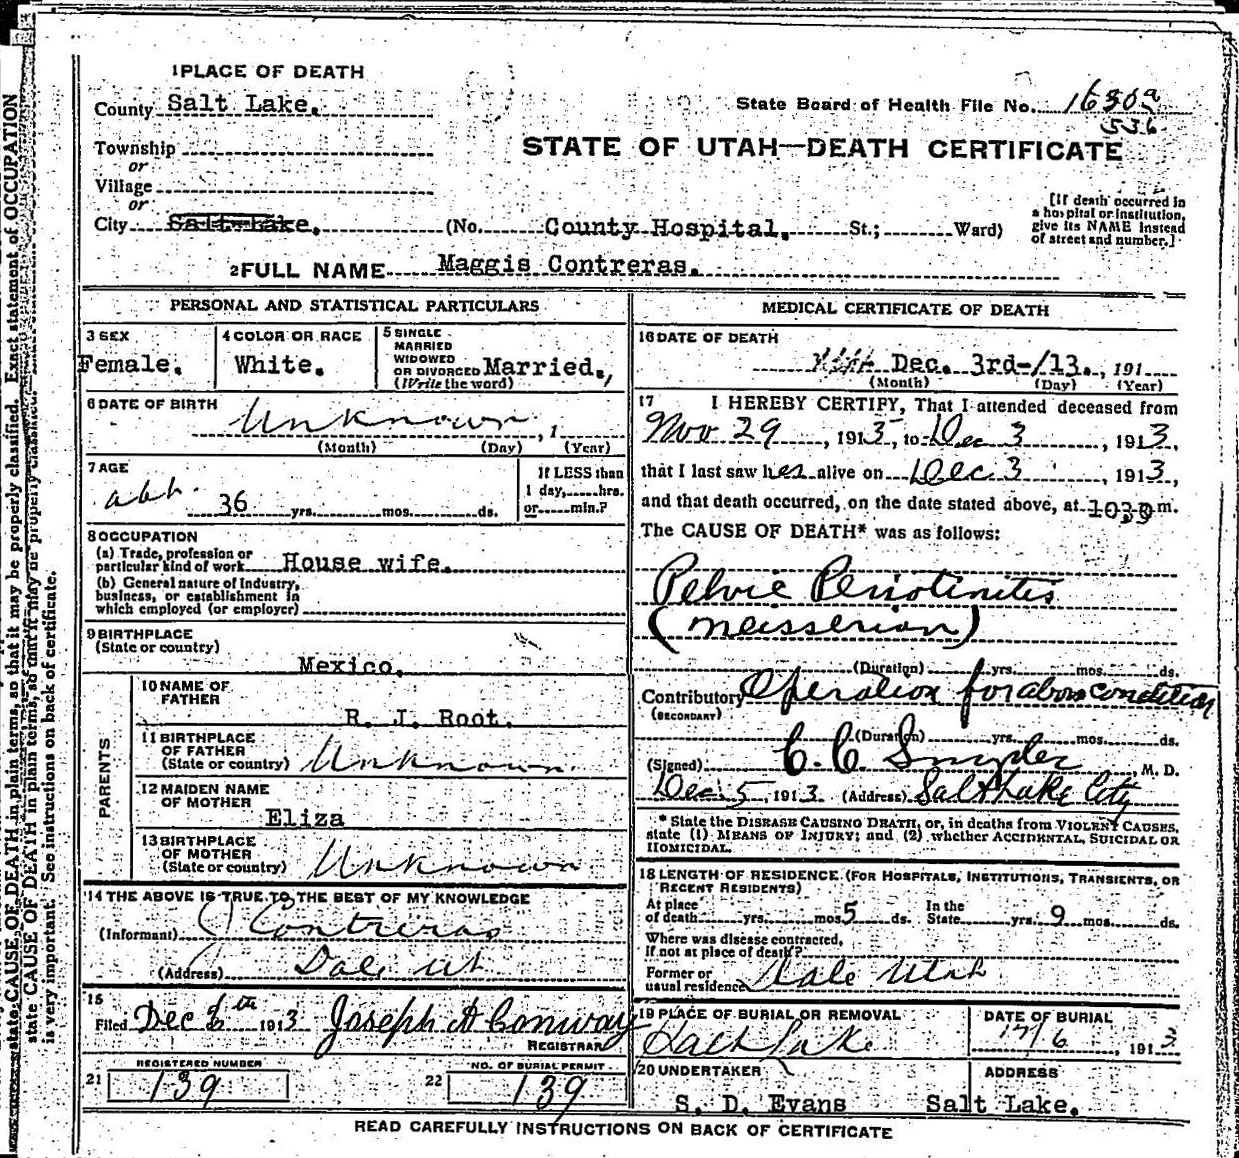 1 PLACE OF DEATH
County Salt Lake.
State Board of Health File No. 1630a
536
Township
or
Village
or
City Salt Lake. (No. County Hospital. St.; Ward)
[If death occurred in
a hospital or institution,
give its NAME instead
of street and number.]
STATE OF UTAH—DEATH CERTIFICATE
2 FULL NAME Maggis Contreras.
PERSONAL AND STATISTICAL PARTICULARS
3 SEX
Female.
4 COLOR OR RACE
White.
5 SINGLE
MARRIED
WIDOWED
OR DIVORCED Married.,
(Write the word)
6 DATE OF BIRTH
Unknown, 1
(Month) (Day) (Year)
7 AGE
abt. 36 yrs. mos. ds.
If LESS than
1 day, hrs.
or min.?
8 OCCUPATION
(a) Trade, profession or
particular kind of work House wife.
(b) General nature of Industry,
business, or establishment in
which employed (or employer)
9 BIRTHPLACE
(State or country)
Mexico.
PARENTS
10 NAME OF
FATHER
R. J. Root.
11 BIRTHPLACE
OF FATHER
(State or country) Unknown.
12 MAIDEN NAME
OF MOTHER
Eliza
13 BIRTHPLACE
OF MOTHER
(State or country) Unknown
14 THE ABOVE IS TRUE TO THE BEST OF MY KNOWLEDGE
(Informant) J Contreras
(Address) Dale Ut
15
Filed Dec 6th 1913 Joseph A Conway
REGISTRAR
REGISTERED NUMBER
21 139
NO. OF BURIAL PERMIT
22 139
MEDICAL CERTIFICATE OF DEATH
16 DATE OF DEATH
Dec. 3rd-/13., 191
(Month) (Day) (Year)
17 I HEREBY CERTIFY, That I attended deceased from
Nov 29, 1913, to Dec 3, 1913,
that I last saw her alive on Dec. 3, 1913,
and that death occurred, on the date stated above, at 1030 m.
The CAUSE OF DEATH* was as follows:
Pelvic Periotinitis
(neisserian)
(Duration) yrs. mos. ds.
Contributory Operation for above condition
(SECONDARY)
(Duration) yrs. mos. ds.
(Signed) C. C. Snyder M. D.
Dec 5, 1913 (Address) Salt Lake City
* State the DISEASE CAUSING DEATH, or, in deaths from VIOLENT CAUSES,
state (1) MEANS OF INJURY; and (2) whether ACCIDENTAL, SUICIDAL OR
HOMICIDAL.
18 LENGTH OF RESIDENCE (FOR HOSPITALS, INSTITUTIONS, TRANSIENTS, OR
RECENT RESIDENTS)
At place
of death yrs. mos 5 ds.
In the
State yrs. 9 mos. ds.
Where was disease contracted,
if not at place of death?
Former or
usual residence Dale Utah
19 PLACE OF BURIAL OR REMOVAL
Salt Lake
DATE OF BURIAL
12/6, 1913
20 UNDERTAKER
S. D. Evans
ADDRESS
Salt Lake.
READ CAREFULLY INSTRUCTIONS ON BACK OF CERTIFICATE
state CAUSE OF DEATH in plain terms, so that it may be properly classified. Exact statement of OCCUPATION
is very important. See instructions on back of certificate.